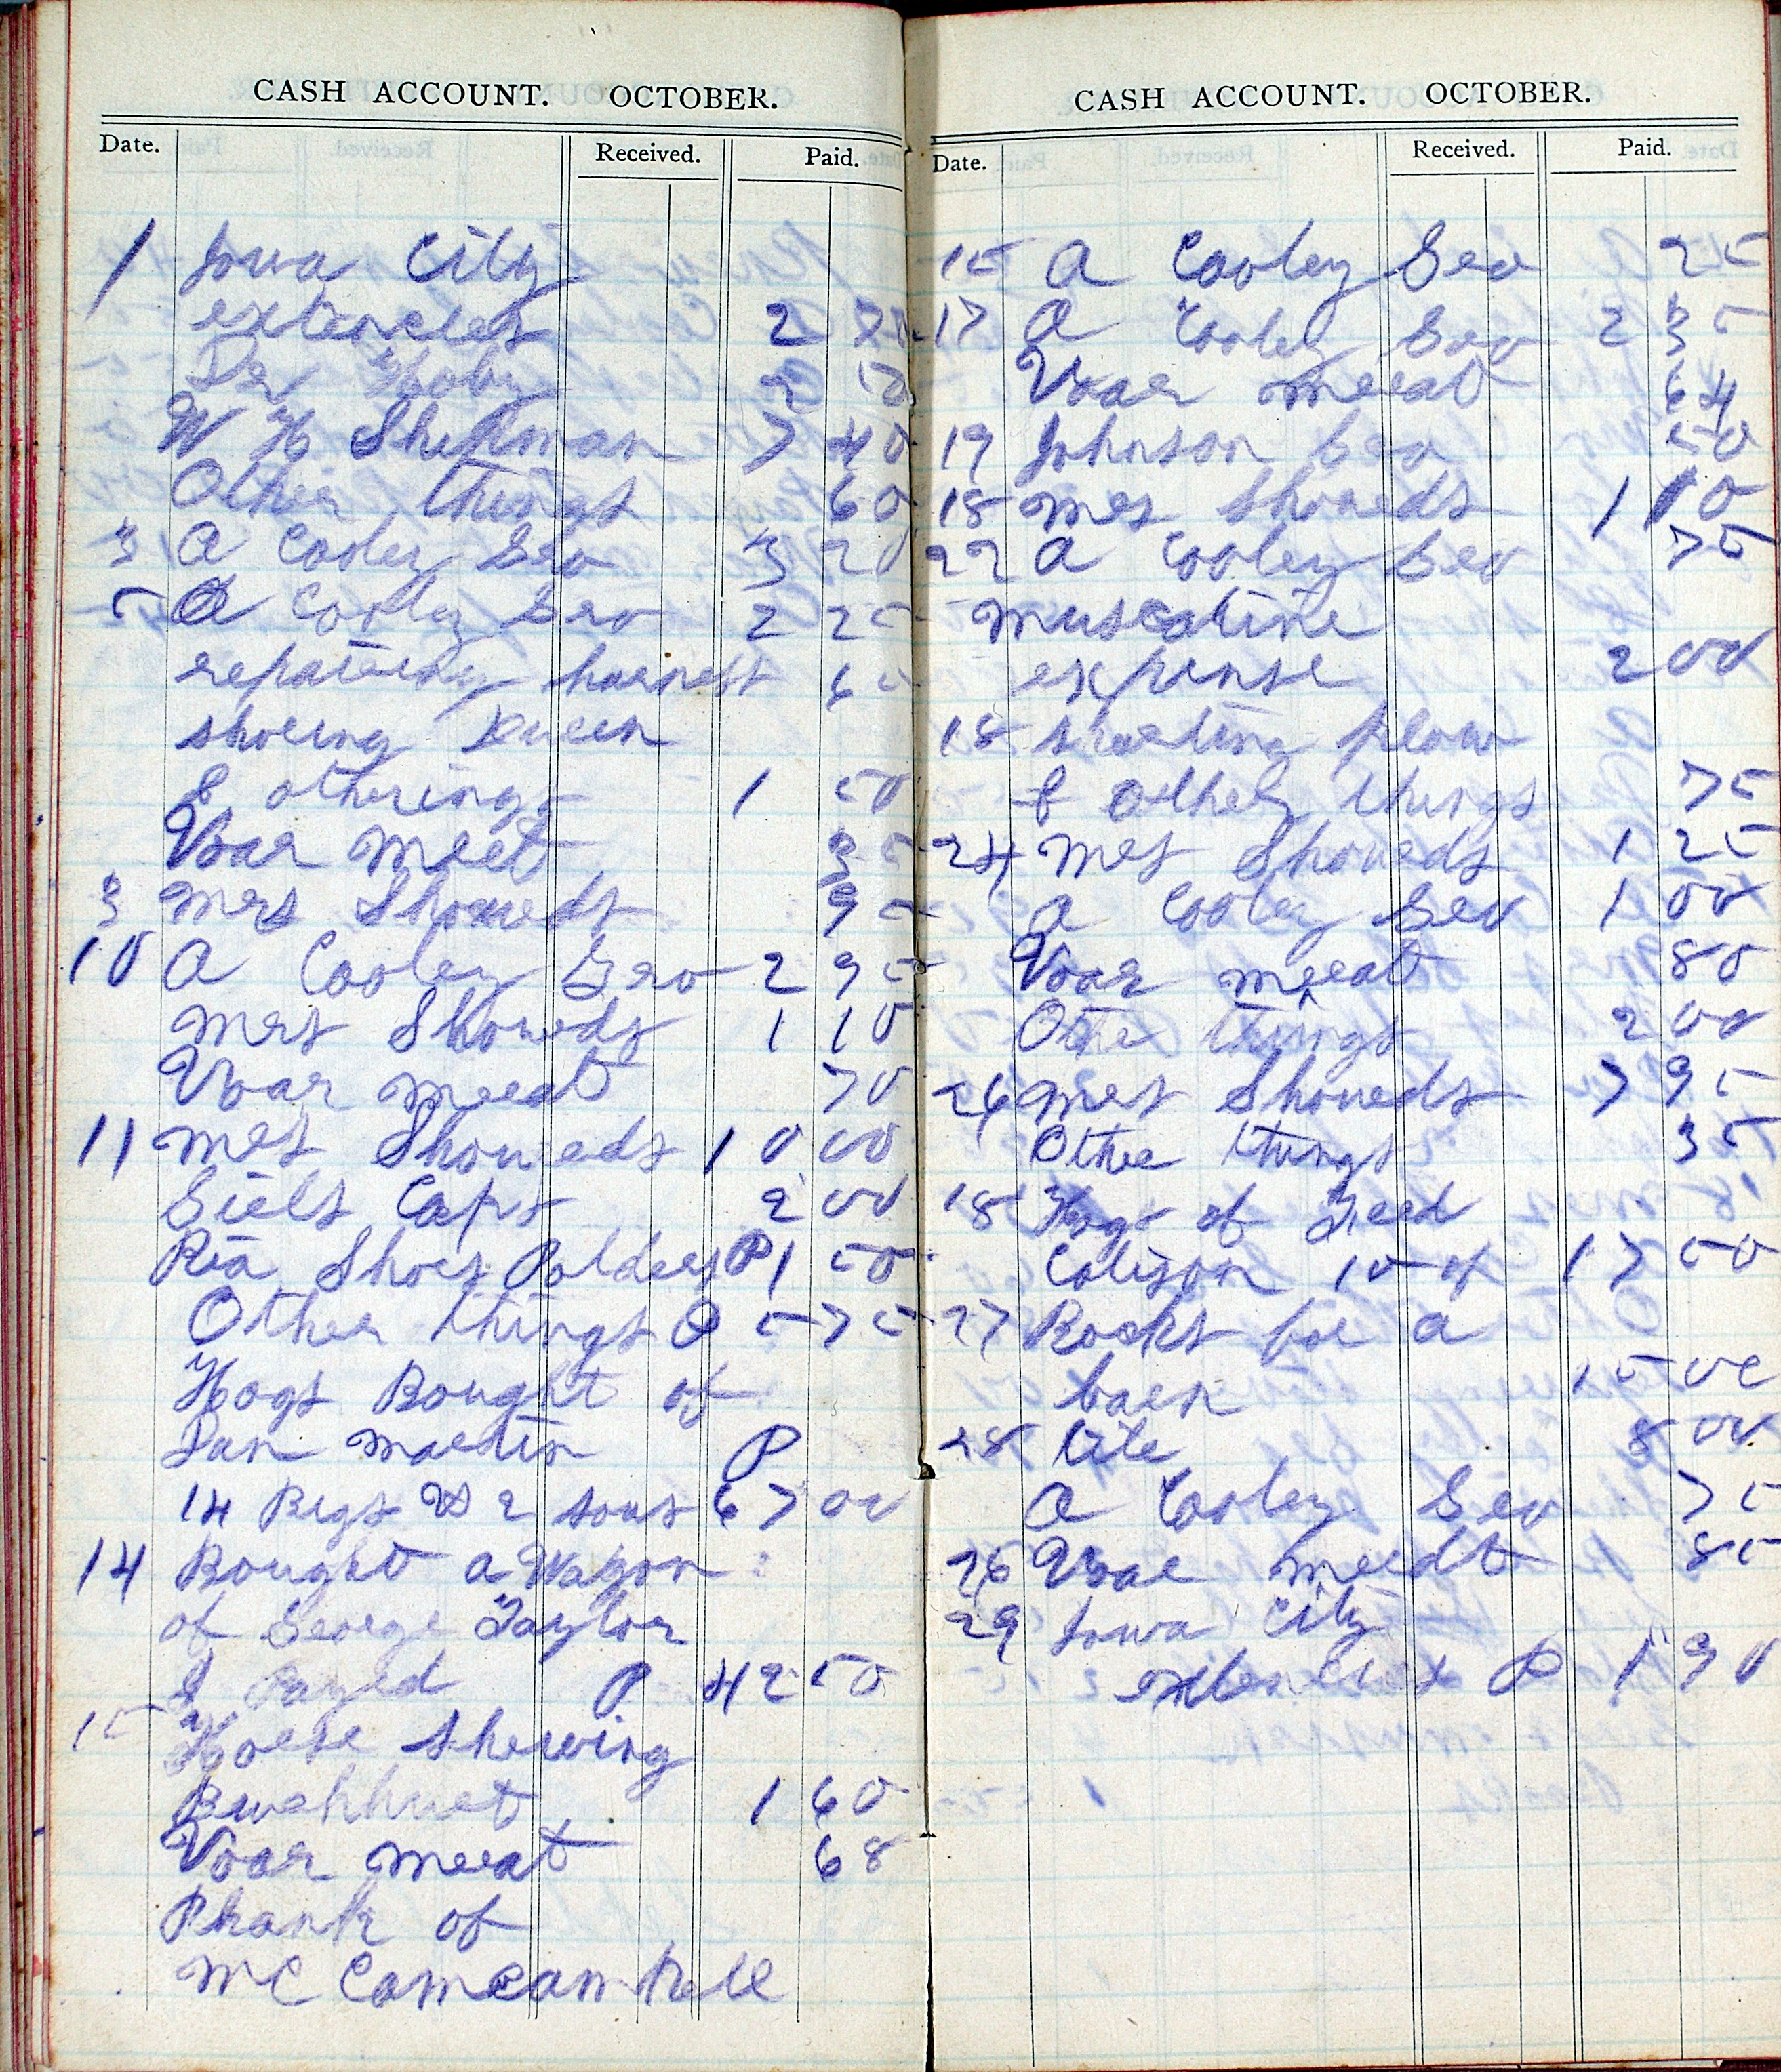 CASH ACCOUNT. OCTOBER.
Date. Received. Paid.
1 Iowa City
extencies 2
Dr 2 50
W H Shipman 7 40
Other things 60
3 A Cooley Gro 3 20
5 A Cooley Gro 2 25
repairing harness 65
shoeing Queen
& otherings 1 50
Voar Meet 35
3 Mrs Showeds 95
10 A Cooley Gro 2 95
Mrs Showeds 1 10
Voar Meeat 70
11 Mrs Showeds 10 00
Girls Caps 2 00
Ria Shoes P 1 50
Other things P 5 75
Hogs Bought of
Dan Martin P
14 Pigs & 2 sows 67 00
14 Bought a Wagon
of George Taylor
I Payed P 42 50
15 Horse Shewing
1 60
Voar meeat 68
Phank of
MC
CASH ACCOUNT. OCTOBER.
Date. Received. Paid.
15 A Cooley Gro 25
17 A Cooley Gro 2 35
Voar meeat 64
19 Johnson Gro 50
18 Mrs Showeds 1 10
22 A Cooley Gro 75
Muscatine
expense 2 00
18 plow
& Other things 75
24 Mrs Showeds 1 25
A Cooley Gro 1 00
Voar meeat 80
Othe things 2 00
26 Mrs Showeds 7 95
Othe things 35
18 Hogs of Fred
Colison 10 of 17 50
27 Rocks for a
barn 15 00
28 8 00
A Cooley Gro 75
26 Voar meedt 85
29 Iowa City
extencies P 1 90